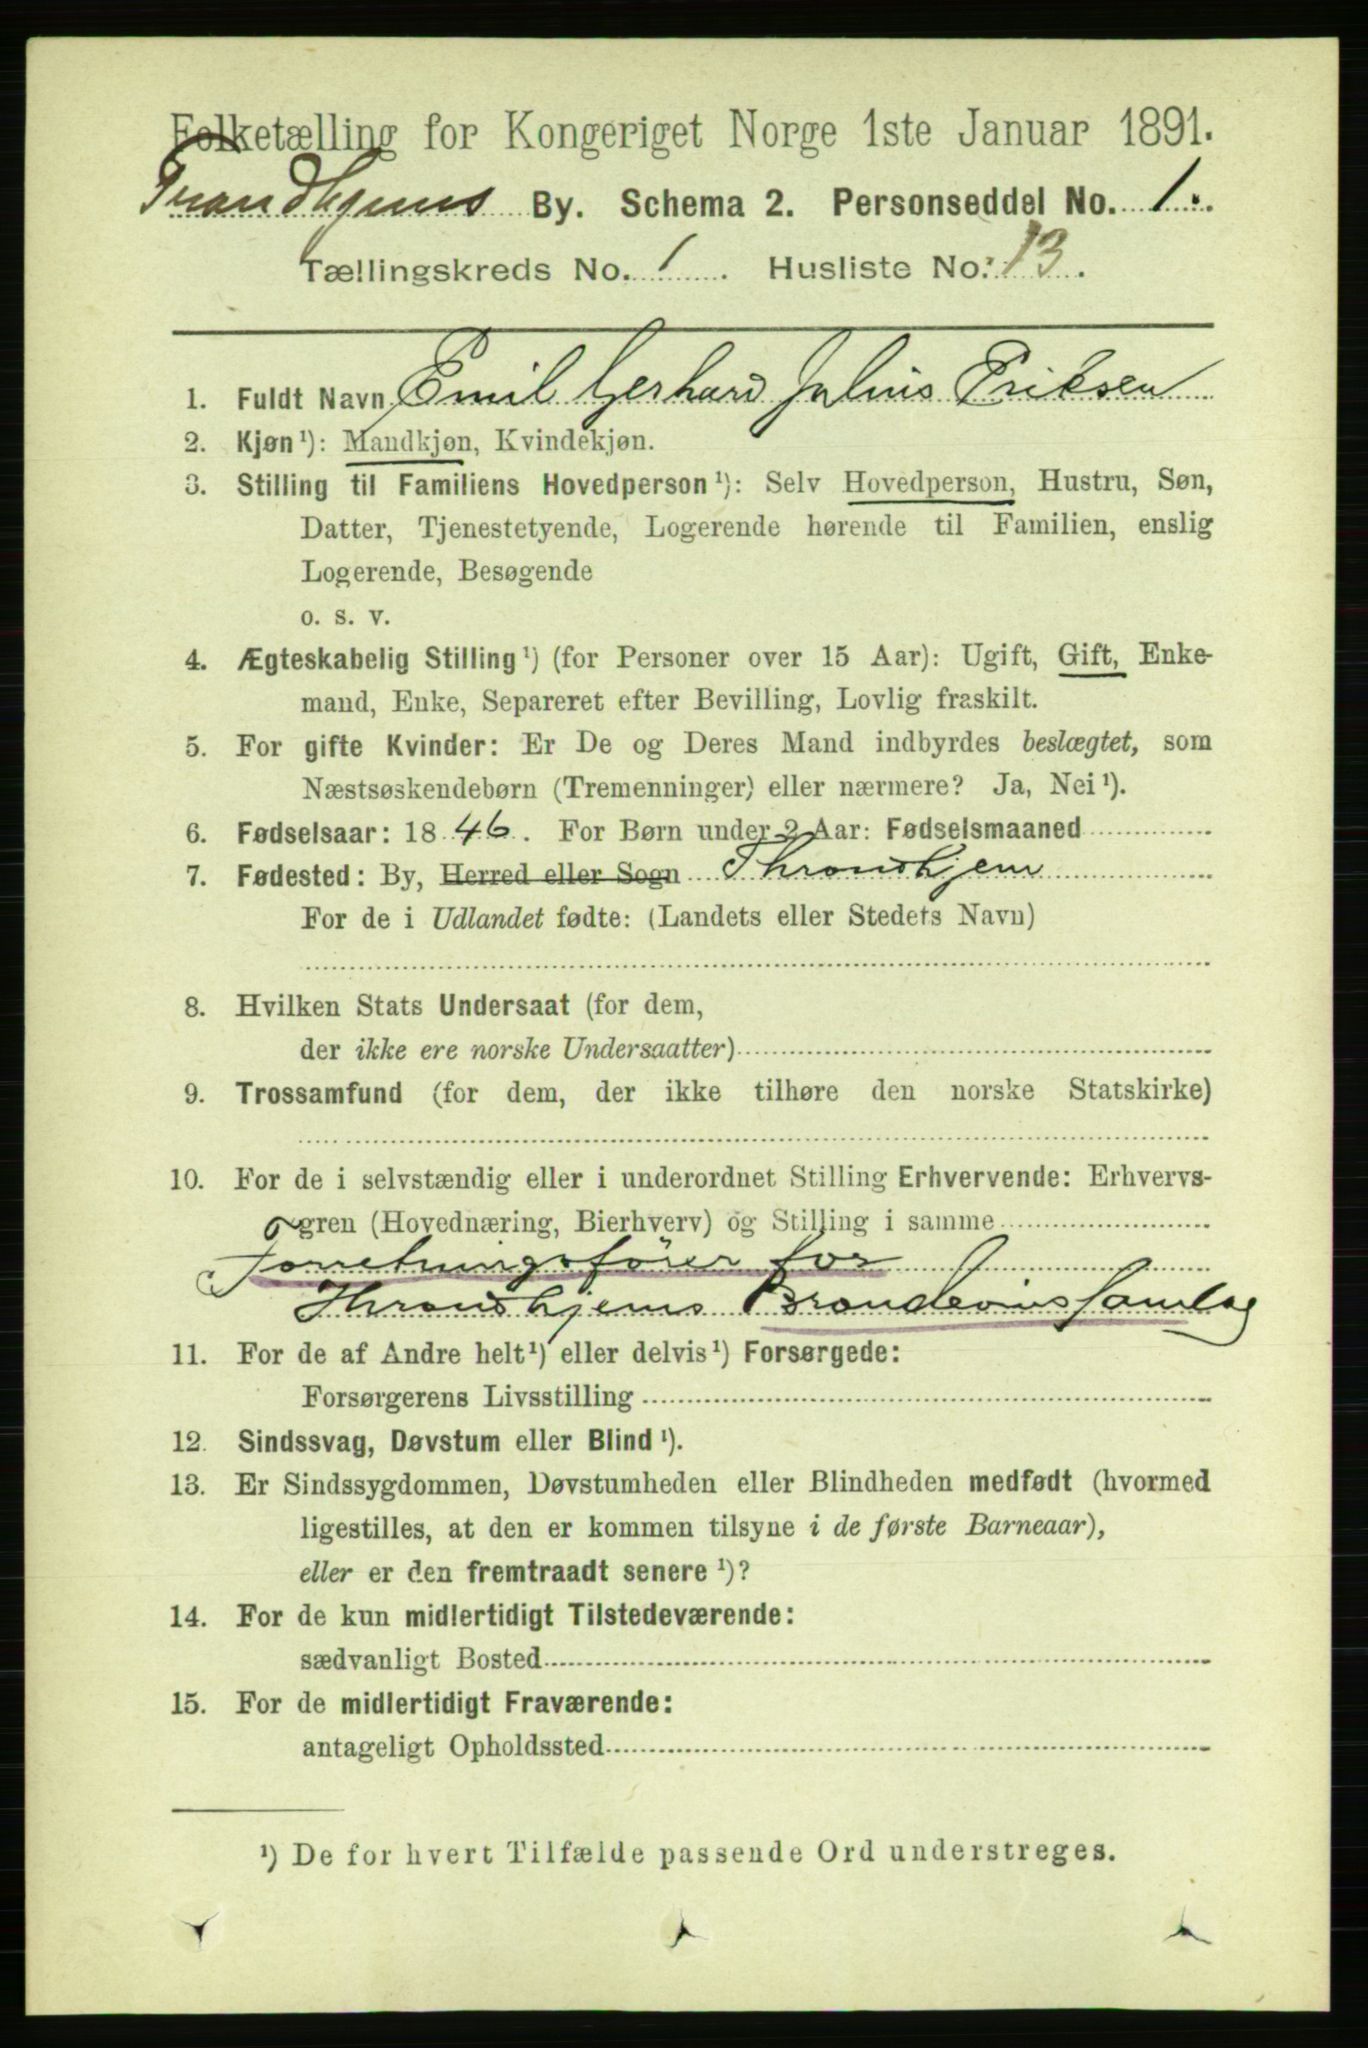 Folketælling for Kongeriget Norge 1ste Januar 1891.
Trondhjems By. Schema 2. Personseddel No. 1.
Tællingskreds No. 1. Husliste No. 13.
1. Fuldt Navn Emil Gerhard Julius Eriksen
2. Kjøn¹): Mandkjøn, Kvindekjøn.
3. Stilling til Familiens Hovedperson¹): Selv Hovedperson, Hustru, Søn,
Datter, Tjenestetyende, Logerende hørende til Familien, enslig
Logerende, Besøgende
o. s. v.
4. Ægteskabelig Stilling¹) (for Personer over 15 Aar): Ugift, Gift, Enke-
mand, Enke, Separeret efter Bevilling, Lovlig fraskilt.
5. For gifte Kvinder: Er De og Deres Mand indbyrdes beslægtet, som
Næstsøskendebørn (Tremenninger) eller nærmere? Ja, Nei¹).
6. Fødselsaar: 1846. For Børn under 2 Aar: Fødselsmaaned
7. Fødested: By, Herred eller Sogn Throndhjem
For de i Udlandet fødte: (Landets eller Stedets Navn)
8. Hvilken Stats Undersaat (for dem,
der ikke ere norske Undersaatter)
9. Trossamfund (for dem, der ikke tilhøre den norske Statskirke)
10. For de i selvstændig eller i underordnet Stilling Erhvervende: Erhvervs-
gren (Hovednæring, Bierhverv) og Stilling i samme
Forretningsfører for
Throndhjems Brændevinssamlag
11. For de af Andre helt¹) eller delvis¹) Forsørgede:
Forsørgerens Livsstilling
12. Sindssvag, Døvstum eller Blind¹).
13. Er Sindssygdommen, Døvstumheden eller Blindheden medfødt (hvormed
ligestilles, at den er kommen tilsyne i de første Barneaar),
eller er den fremtraadt senere¹)?
14. For de kun midlertidigt Tilstedeværende:
sædvanligt Bosted
15. For de midlertidigt Fraværende:
antageligt Opholdssted
¹) De for hvert Tilfælde passende Ord understreges.